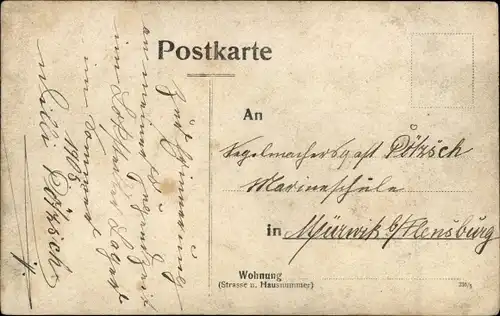 Postkarte
Zur Erinnerung
an meine
im Lockstedter Lager
im Sommer
1908
Willi Pötzsch
An
Segelmachersgast Pötzsch
Marineschule
in Mürwik b/Flensburg
Wohnung
(Strasse u. Hausnummer)